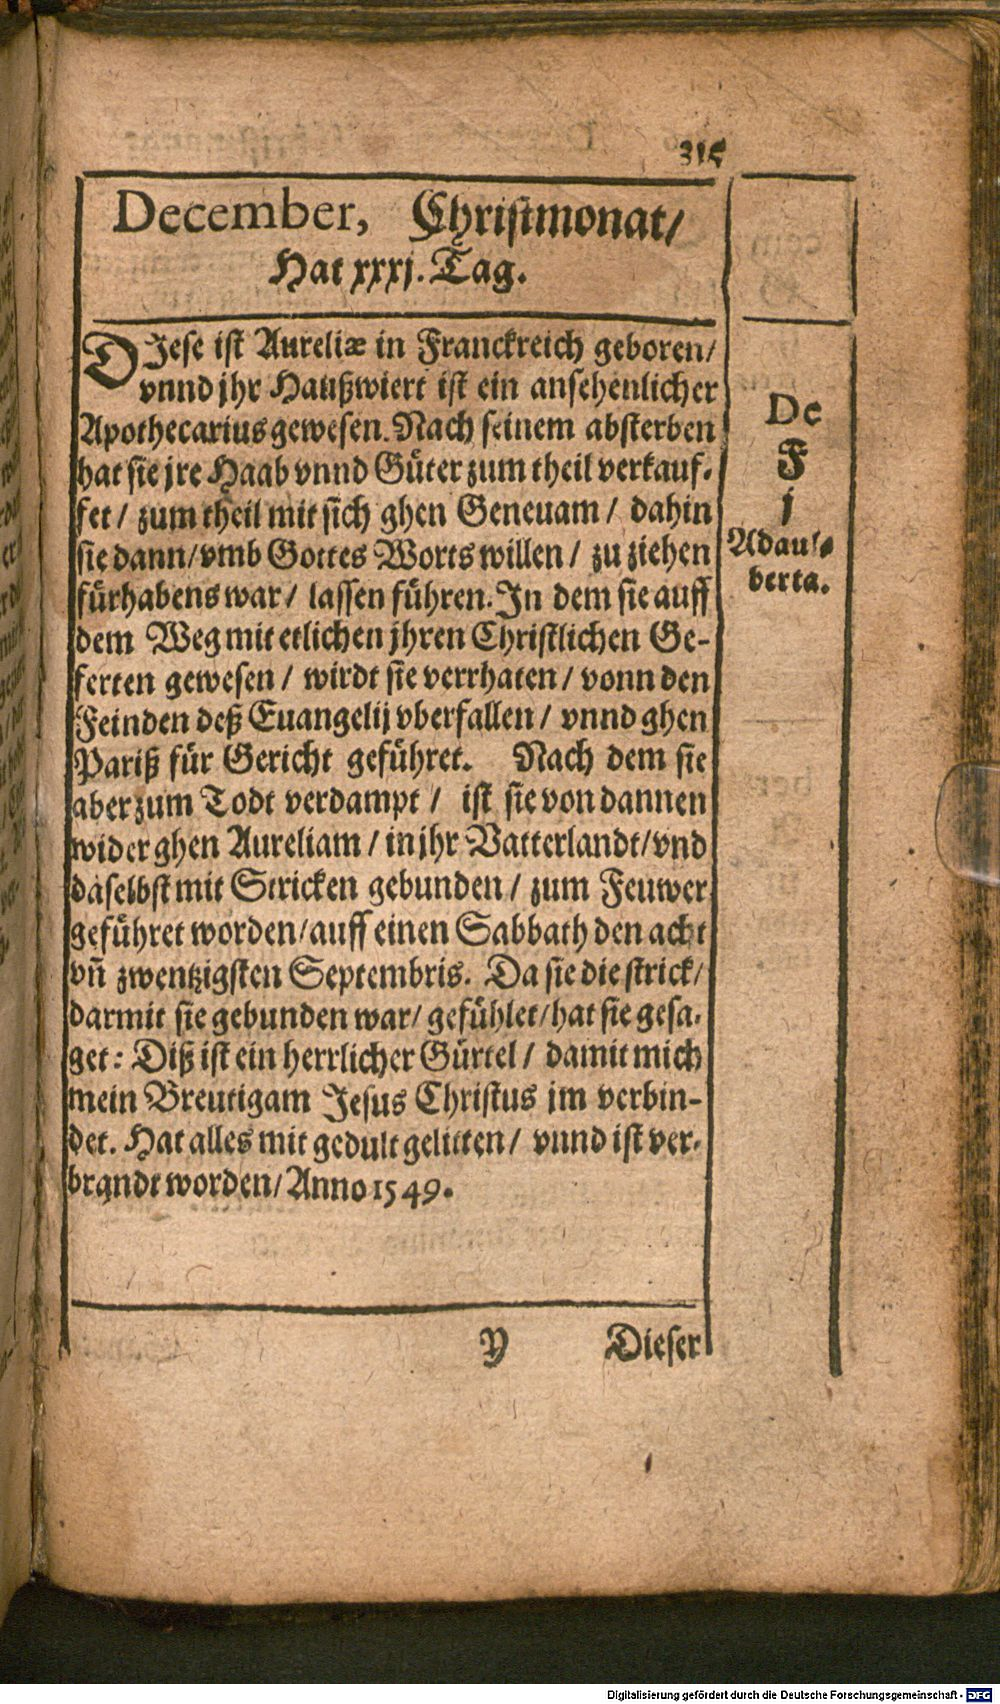 315
December, Christmonat/
Hat xxxj. Tag.
DIese ist Aureliæ in Franckreich geboren/
vnnd jhr Haußwiert ist ein ansehenlicher
Apothecarius gewesen. Nach seinem absterben
hat sie jre Haab vnnd Güter zum theil verkauf-
fet / zum theil mit sich ghen Geneuam / dahin
sie dann/vmb Gottes Worts willen / zu ziehen
fürhabens war / lassen führen. In dem sie auff
dem Weg mit etlichen jhren Christlichen Ge-
ferten gewesen / wirdt sie verrhaten / vonn den
Feinden deß Euangelij vberfallen / vnnd ghen
Pariß für Gericht geführet. Nach dem sie
aber zum Todt verdampt / ist sie von dannen
wider ghen Aureliam / in jhr Vatterlandt/vnd
daselbst mit Stricken gebunden / zum Feuwer
geführet worden/auff einen Sabbath den acht
vñ zwentzigsten Septembris. Da sie die strick/
darmit sie gebunden war/ gefühlet/hat sie gesa-
get: Diß ist ein herrlicher Gürtel / damit mich
mein Breutigam Jesus Christus jm verbin-
det. Hat alles mit gedult gelitten / vnnd ist ver-
brandt worden/ Anno 1549.
De
F
j
Adau-
berta.
Y Dieser
Digitalisierung gefördert durch die Deutsche Forschungsgemeinschaft - DFG